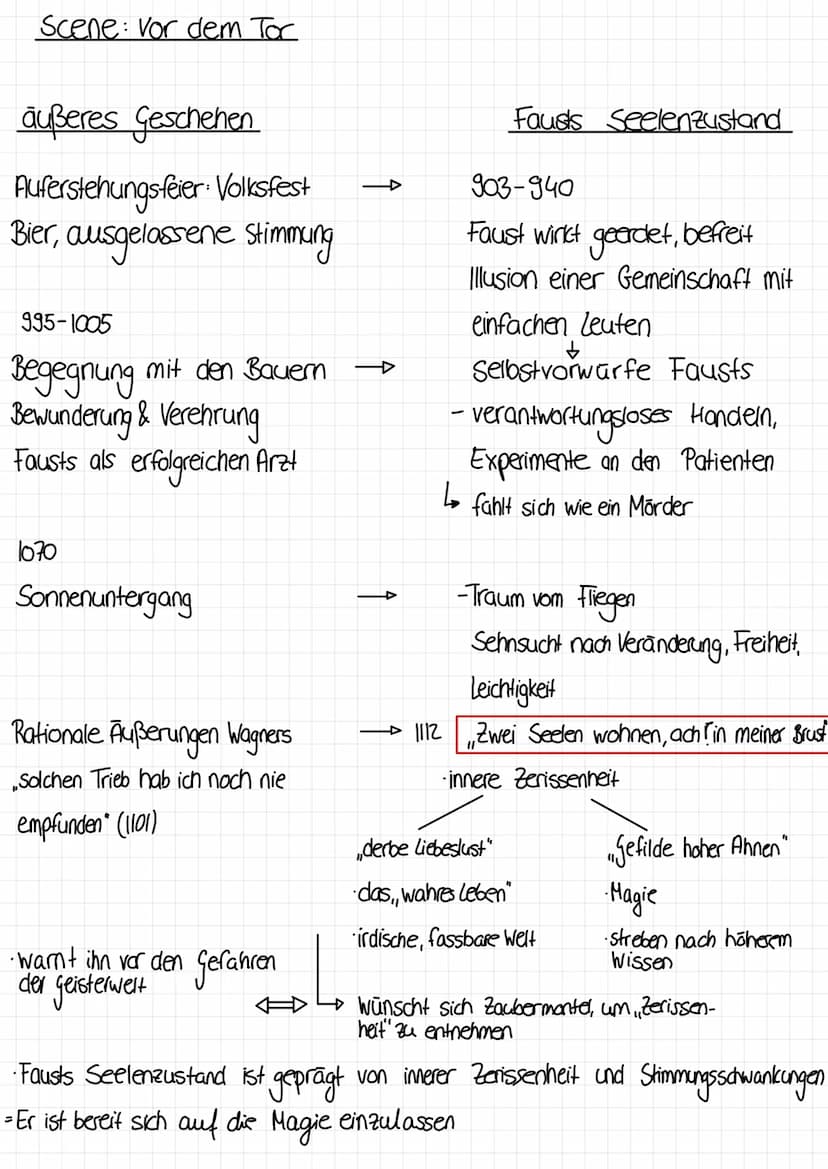 Scene: Vor dem Tor
äußeres Geschehen
Fausts Seelenzustand
Auferstehungsfeier: Volksfest → 903-940
Bier, ausgelassene Stimmung
Faust wirkt geerdet, befreit
Illusion einer Gemeinschaft mit
einfachen Leuten
↓
995-1005
Begegnung mit den Bauern →
Bewunderung & Verehrung
Fausts als erfolgreichen Arzt
Selbstvorwürfe Fausts
- verantwortungsloses Handeln,
Experimente an den Patienten
↳ fühlt sich wie ein Mörder
1070
Sonnenuntergang →
-Traum vom Fliegen
Sehnsucht nach Veränderung, Freiheit,
Leichtigkeit
Rationale Äußerungen Wagners → 1112 „Zwei Seelen wohnen, ach! in meiner Brust
„solchen Trieb hab ich noch nie
empfunden" (1101)
·innere Zerissenheit
„derbe Liebeslust"
·das „wahres Leben"
·irdische, fassbare Welt
„Gefilde hoher Ahnen"
·Magie
·streben nach höherem
Wissen
·warnt ihn vor den Gefahren
der Geisterwelt
⇔ ↳ wünscht sich Zaubermantel, um „Zerissen-
heit" zu entnehmen
·Fausts Seelenzustand ist geprägt von innerer Zerissenheit und Stimmungsschwankungen
=Er ist bereit sich auf die Magie einzulassen